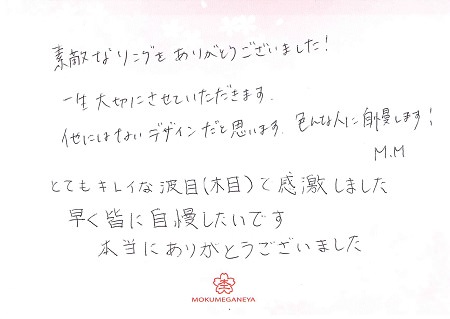 素敵なリングをありがとうございました！
一生大切にさせていただきます。
他にはないデザインだと思います。色んな人に自慢します！
M.M
とてもキレイな波目(木目)で感激しました
早く皆に自慢したいです
本当にありがとうございました
MOKUMEGANEYA